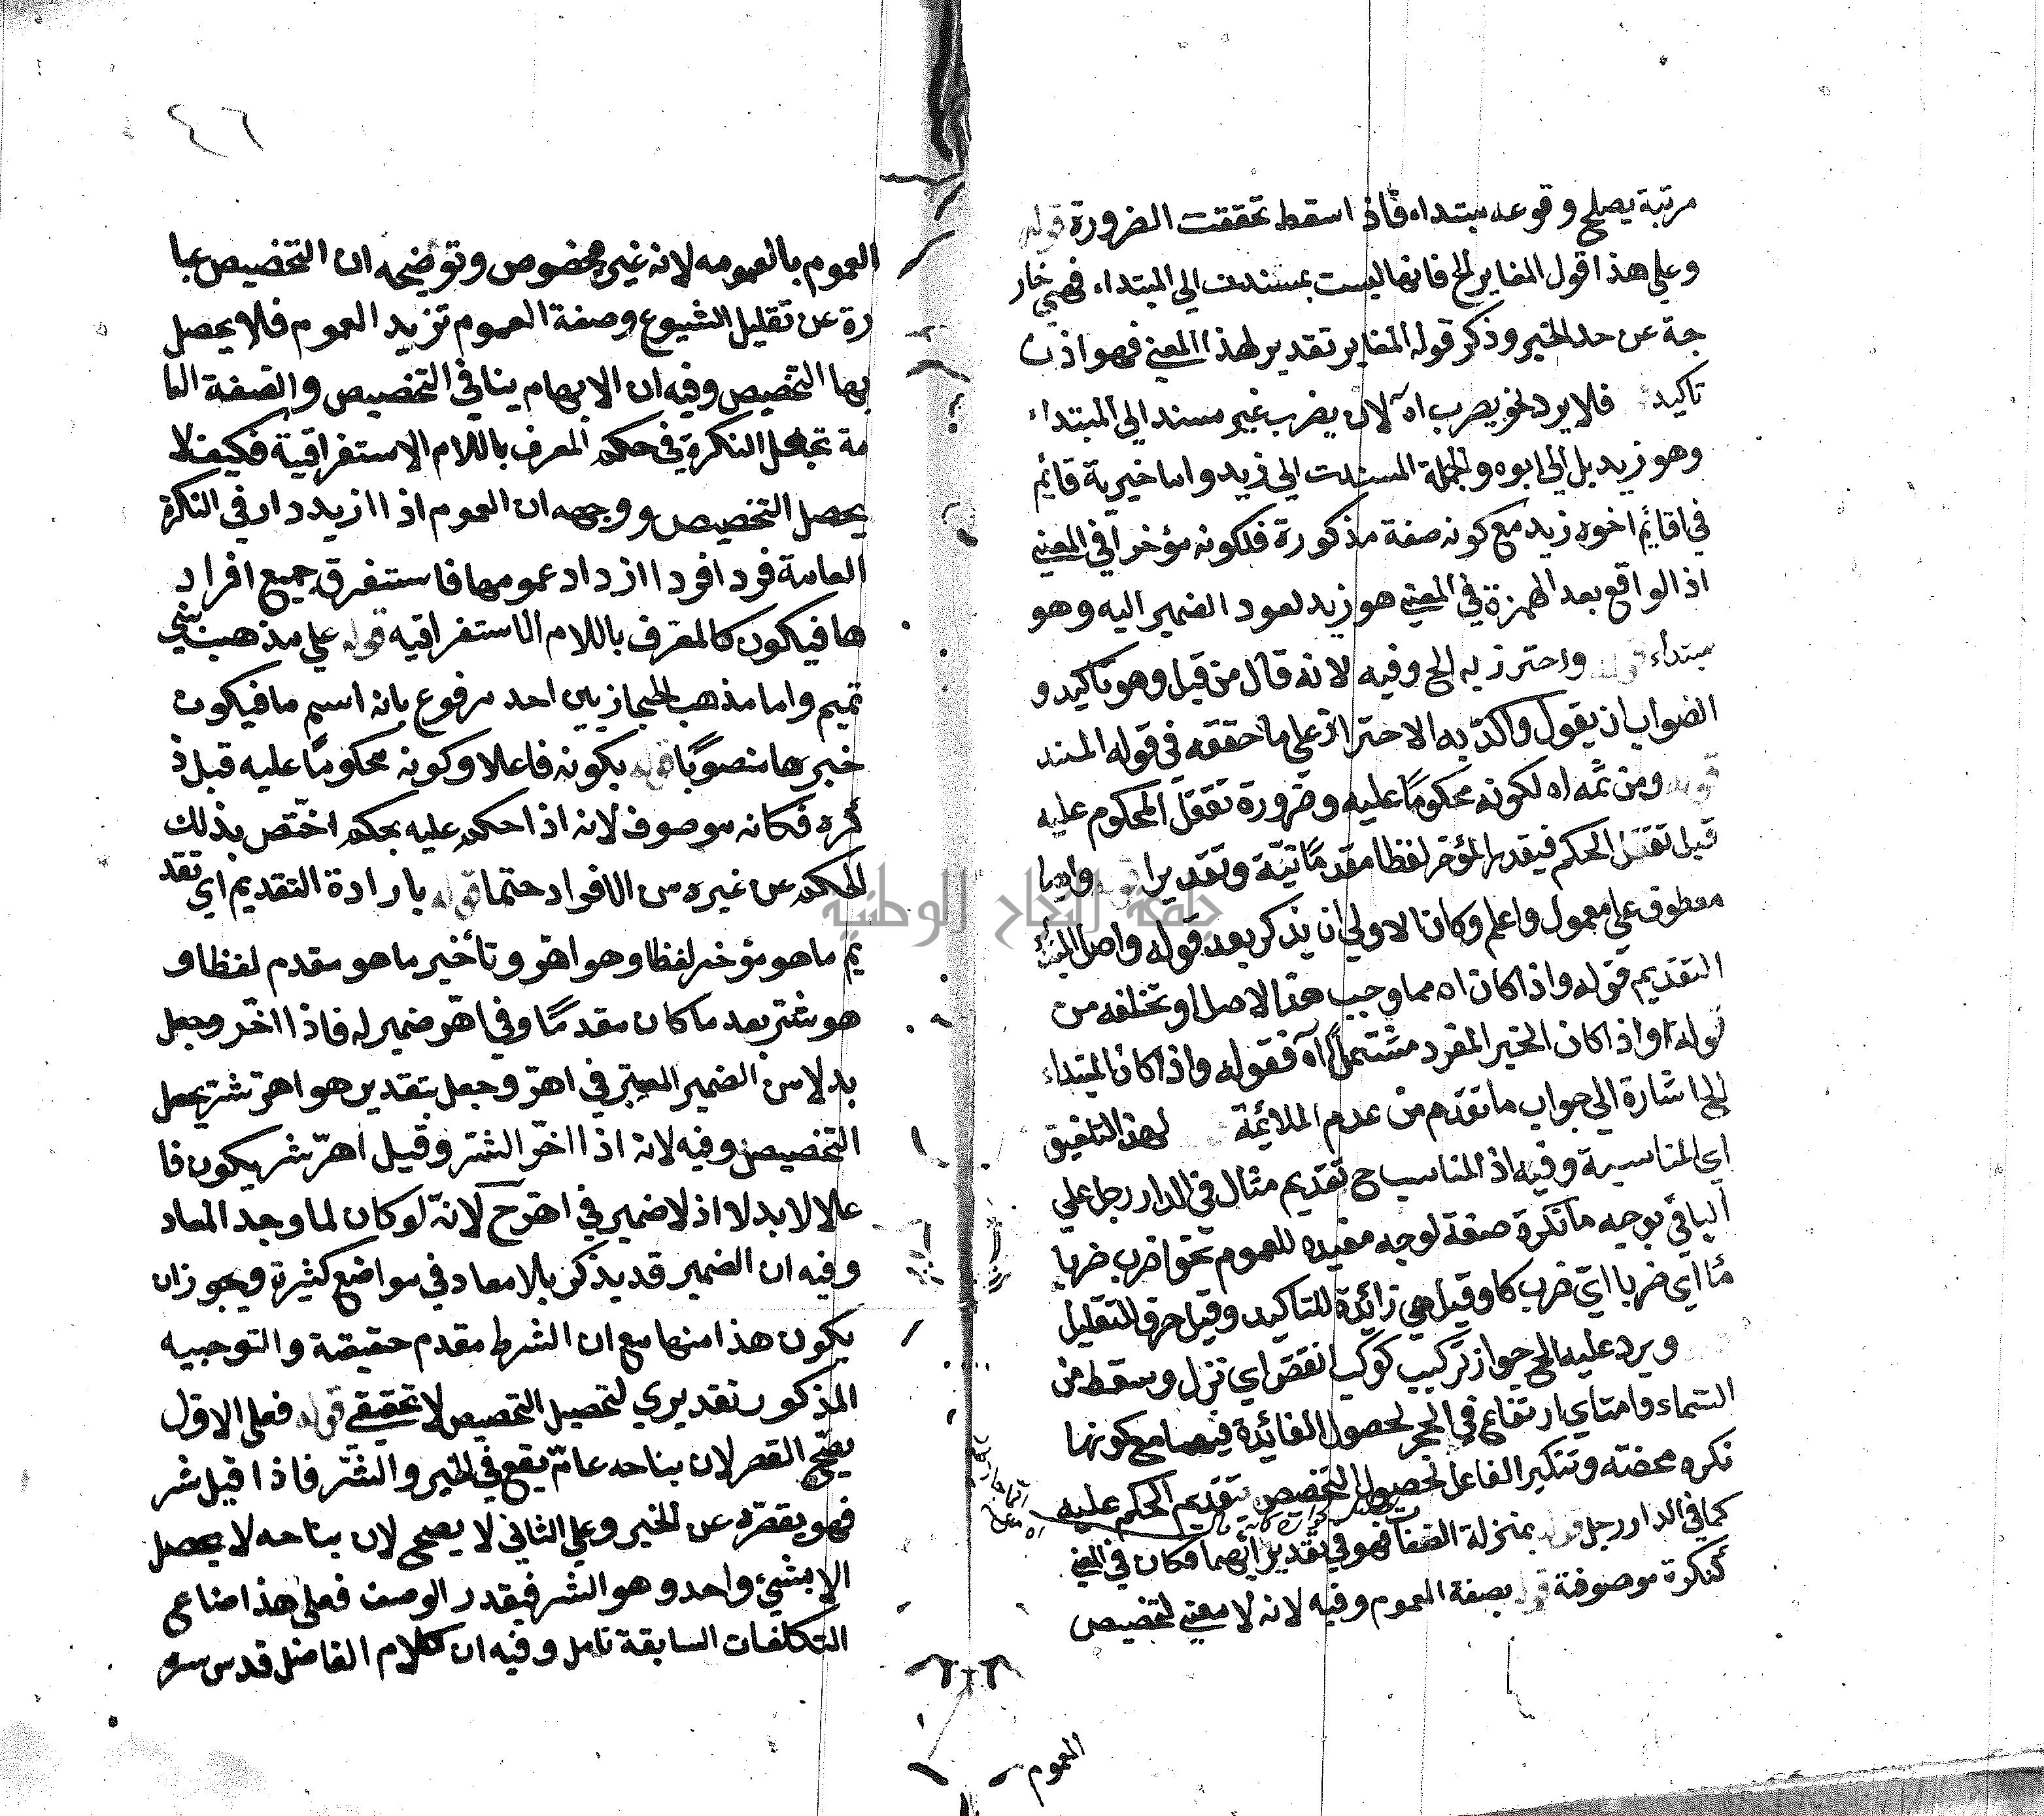 مرتبة يصلح وقوعه مبتداء فاذا سقط تحققت الضرورة قوله
وعلي هذا قول المغاير الخ فانها ليست بمسندت الي المبتداء فهي خار
جة عن حد الخبر وذكر قوله المغاير تقدير لهذا المعني فهو اذن
تاكيد فلا يرد نحو يضرب اه لان يضرب غير مسند الي المبتداء
وهو زيد بل الي ابوه والجملة المسندت الي زيد واما خبرية قائم
في اقائم اخوه زيد مع كونه صفة مذكورة فلكونه مؤخرا في المعني
اذ الواقع بعد الهمزة في المعني هو زيد لعود الضمير اليه وهو
مبتداء قوله واحترز به الخ وفيه لانه قال من قبل وهو تاكيد و
الصواب ان يقول واكد به الاحتراز علي ما حققه في قوله المسند
قوله ومن ثمه اه لكونه محكوما عليه وضرورة تعقل المحكوم عليه
قبل تعقل الحكم فيقدر المؤخر لفظا مقدما نية وتقديرا قوله واما
معطوف علي معمول واعلم وكان الاولي ان يذكر بعد قوله واصل المبتدأ
التقديم قوله واذا كان اه مما وجب هذا الاصل او تخلفه من
قوله او اذا كان الخبر المفرد مشتملا اه فقوله واذا كان المبتداء
الخ اشارة الي جواب ما تقدم من عدم الملائمة لهذا التلفيق
اي المناسبة وفيه اذ المناسب ح تقديم مثال في الدار رجل علي
الباقي بوجه ما نكرة صفة لوجه مفيده للعموم نحو اضرب ضربا
ما اي ضربا اي ضرب كا وقيل هي زائدة للتاكيد وقيل حرف للتقليل
ويرد عليه الخ جواز تركيب كوكب انقض اي نزل وسقط من
السماء وامتاي ارتفاع في الحجر لحصول الفائدة فيهما مع كونها
نكره محضة وتنكير الفاعل لحصول التخصيص بتقديم الحكم عليه
كما في الدار رجل قوله بمنزلة الصفة فهو في تقدير ايهما فكان في المعني
كنكرة موصوفة قوله بصفة العموم وفيه لانه لا معني لتخصيص
العموم
٤٦
العموم بالعمومه لانه غير مخصوص وتوضيحه ان التخصيص عبا
رة عن تقليل الشيوع وصفة العموم تزيد العموم فلا يحصل
بها التخصيص وفيه ان الابهام ينافي التخصيص والصفة العا
مة تجعل النكرة في حكم المعرف باللام الاستغراقية فكيف لا
يحصل التخصيص ووجهه ان العموم اذا ازيد دار في النكرة
العامة فردا فردا ازداد عمومها فاستغرق جميع افراد
ها فيكون كالمعرف باللام الاستغراقيه قوله علي مذهب بني
تميم واما مذهب الحجازيين احد مرفوع بانه اسم ما فيكون
خبرها منصوبا قوله بكونه فاعلا وكونه محكوما عليه قبل ذ
كره فكانه موصوف لانه اذا حكم عليه بحكم اختص بذلك
الحكم عن غيره من الافراد حتما قوله بارادة التقديم اي تقد
يم ما هو مؤخر لفظا وهو اهر وتأخير ما هو مقدم لفظا و
هو شر بعد ما كان مقدما وفي اهر ضمير له فاذا اخر وجعل
بدلا من الضمير المستتر في اهر وجعل بتقدير هو اهر شر يحصل
التخصيص وفيه لانه اذا اخر الشر وقيل اهر شر يكون فا
علا لا بدلا اذ لا ضمير في اهر ح لانه لو كان لما وجد المعاد
وفيه ان الضمير قد يذكر بلا معاد في مواضع كثيرة ويجوز ان
يكون هذا منها مع ان الشرط مقدم حقيقة والتوجيه
المذكور تقديري لتحصيل التخصيص لا تحققي قوله فعلي الاول
يصح القصر لان بناحه عام يقع في الخير والشر فاذا قيل شر
فهو يقصره عن الخير وعلي الثاني لا يصح لان بناحه لا يحصل
الا بشئ واحد وهو الشر فيقدر الوصف فعلي هذا ضاع
التكلفات السابقة تامل وفيه ان كلام الفاضل قدس سره
جامعة النجاح الوطنية